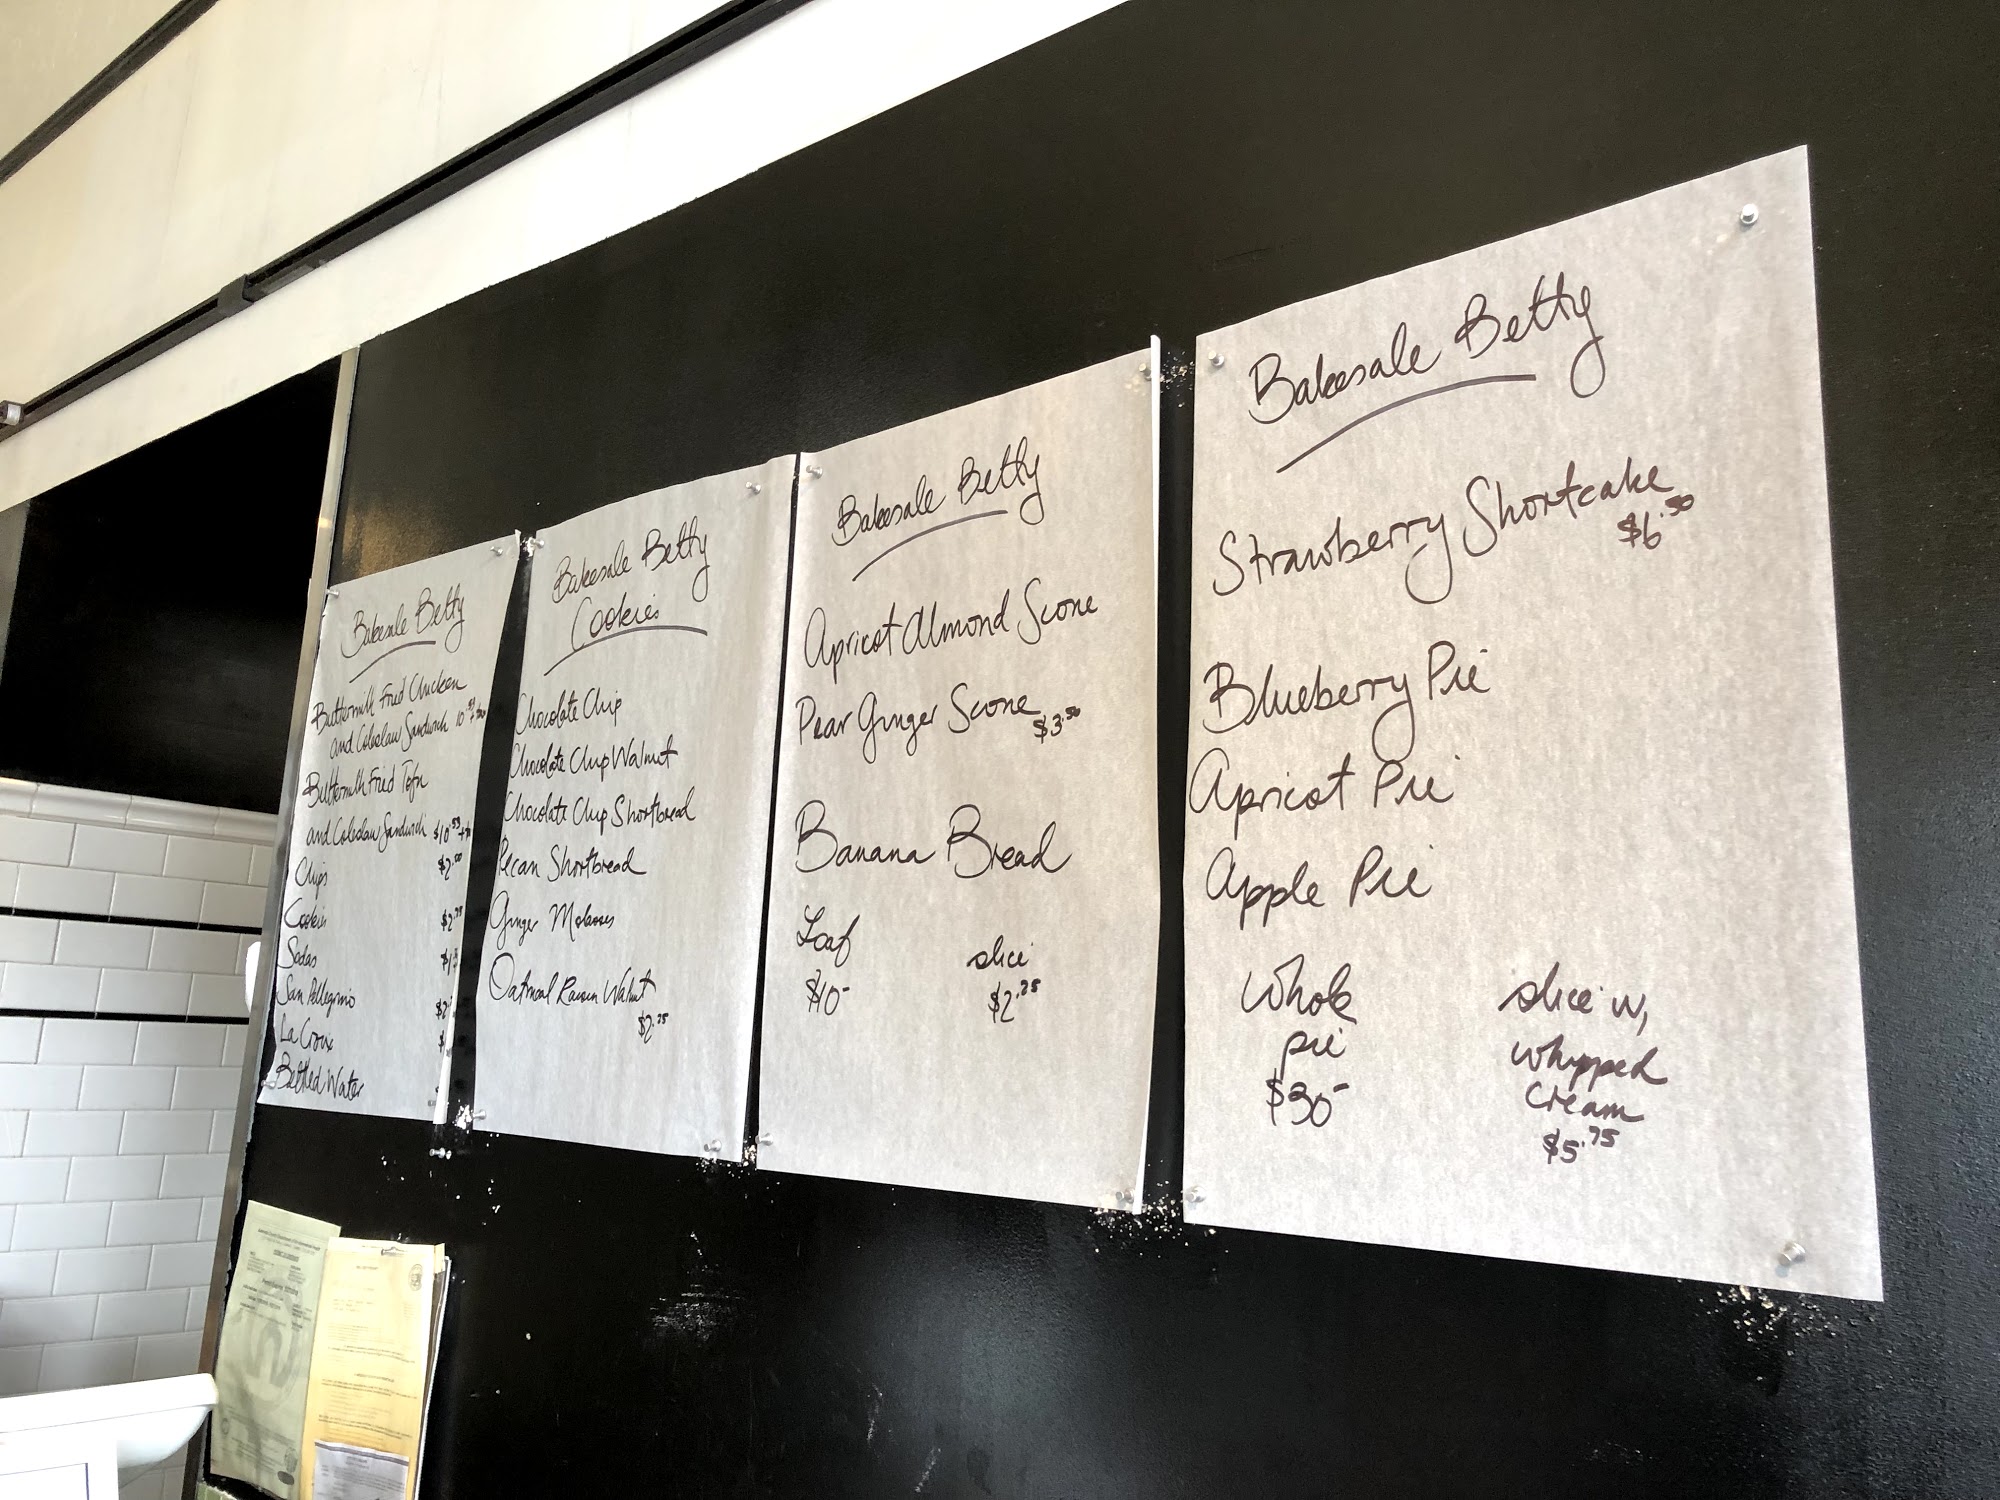 Bakesale Betty
Buttermilk Fried Chicken
and Coleslaw Sandwich 10.59 + tax
Buttermilk Fried Tofu
and Coleslaw Sandwich $10.59 + tax
Chips $2.00
Cookies $2.75
Sodas
San Pellegrino
La Croix
Bottled Water
Bakesale Betty
Cookies
Chocolate Chip
Chocolate Chip Walnut
Chocolate Chip Shortbread
Pecan Shortbread
Ginger Molasses
Oatmeal Raisin Walnut
$2.75
Bakesale Betty
Apricot Almond Scone
Pear Ginger Scone
$3.50
Banana Bread
Loaf slice
$10- $2.75
Bakesale Betty
Strawberry Shortcake
$6.50
Blueberry Pie
Apricot Pie
Apple Pie
whole
pie
$30-
slice w,
whipped
cream
$5.75